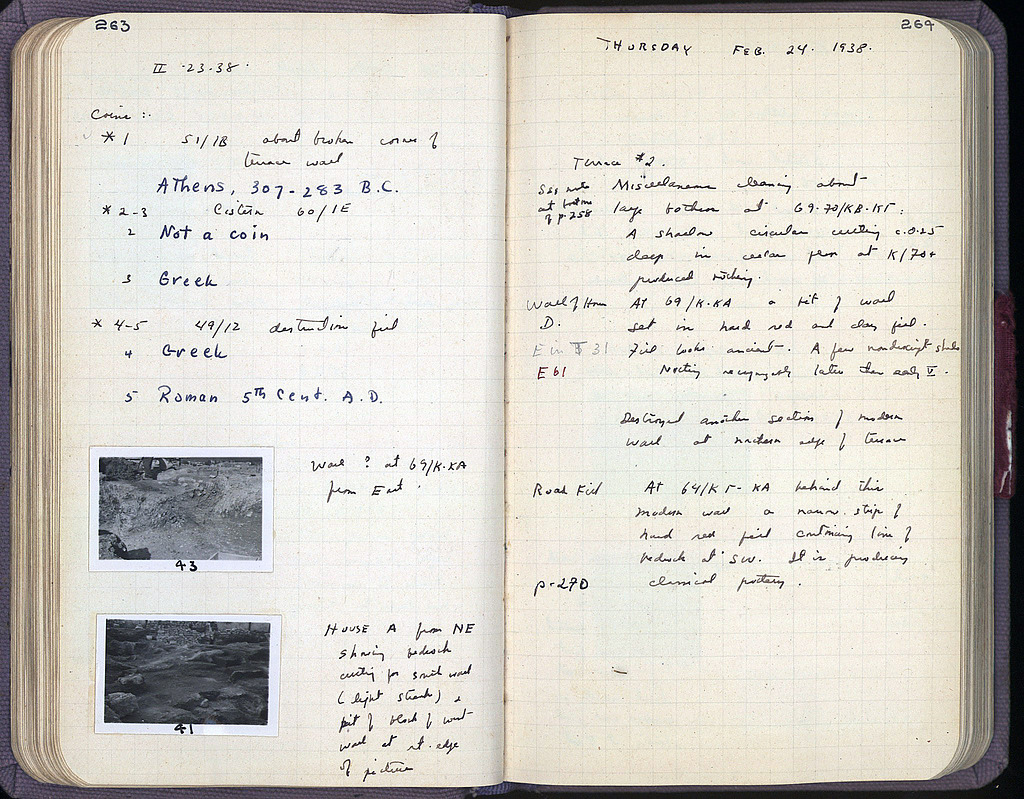 263
II ·23·38·
Coins :·
* 1 51/1B about broken corner of
terrace wall
Athens, 307-283 B.C.
* 2-3 Cistern 60/1E
2 Not a coin
3 Greek
* 4-5 49/12 destruction fill
4 Greek
5 Roman 5th Cent. A.D.
Wall ? at 69/K·KA
from East
43
HOUSE A from NE
showing bedrock
cutting for south wall
(light streak) &
part of block of west
wall at rt. edge
of picture
41
264
THURSDAY FEB. 24. 1938.
Terrace #2.
See note
at bottom
of p.258
Miscellaneous cleaning about
large bothros at 69-70/KB-KΓ:
A shallow circular cutting c.0.25
deep in at K/70+
produced nothing.
Wall of House
D.
At 69/K-KA a bit of wall
set in hard red and clay fill.
E in 31
Fill looks ancient. A few nondescript sherds
E 61
Nothing recognizably later than early V.
Destroyed another section of modern
wall at northern edge of terrace
Road Fill
At 64/KΓ-KA behind this
modern wall a narrow strip of
hard red fill continuing line of
bedrock at SW. It is producing
classical pottery.
p-270